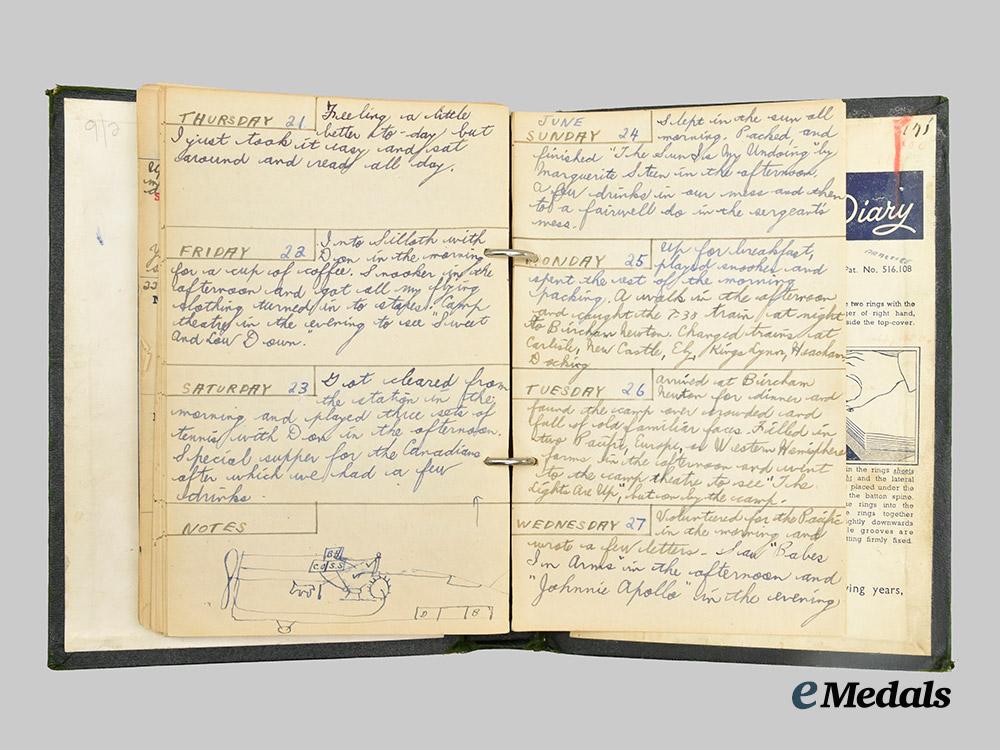 9/2
THURSDAY 21
Feeling a little
better to-day but
I just took it easy and sat
around and read all day.
FRIDAY 22
Into Silloth with
Don in the morning
for a cup of coffee. Snooker in the
afternoon and got all my flying
clothing turned in to stores. Camp
theatre in the evening to see "Sweet
and Low Down."
SATURDAY 23
Got cleared from
the station in the
morning and played three sets of
tennis with Don in the afternoon.
Special supper for the Canadians
after which we had a few
drinks.
NOTES
B.H
C.O S.S
D B
JUNE
SUNDAY 24
Slept in the sun all
morning. Packed, and
finished "The Sun Is My Undoing" by
Marguerite Steen in the afternoon.
A few drinks in our mess and then
to a fairwell do in the sergeant's
mess.
MONDAY 25
Up for breakfast,
played snooker and
spent the rest of the morning
packing. A walk in the afternoon
and caught the 7:38 train at night
to Bircham Newton. Changed trains at
Carlisle, New Castle, Ely, Kings Lynn, Heacham
Docking
TUESDAY 26
Arrived at Bircham
Newton for dinner and
found the camp over crowded and
full of old familiar faces. Filled in
two Pacific, Europe, or Western Hemisphere
forms in the afternoon and went
to the camp theatre to see "The
Lights Are Up", put on by the camp.
WEDNESDAY 27
Volunteered for the Pacific
in the morning and
wrote a few letters - Saw "Babes
In Arms" in the afternoon and
"Johnnie Apollo" in the evening
Diary
Pat. No. 516.108
two rings with the
ger of right hand,
side the top-cover.
in the rings sheets
and the lateral
placed under the
the batton spine.
e rings into the
rings together
ghtly downwards
e grooves are
tting firmly fixed.
ving years,
eMedals